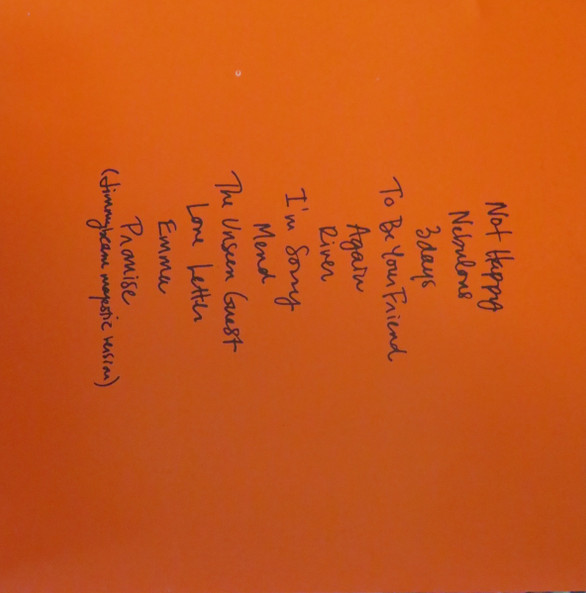 Not Happy
Nebulous
3days
To Be Your Friend
Again
River
I'm Sorry
Mend
The Unseen Guest
Love Letter
Emma
Promise
(Jimmybeans majestic version)